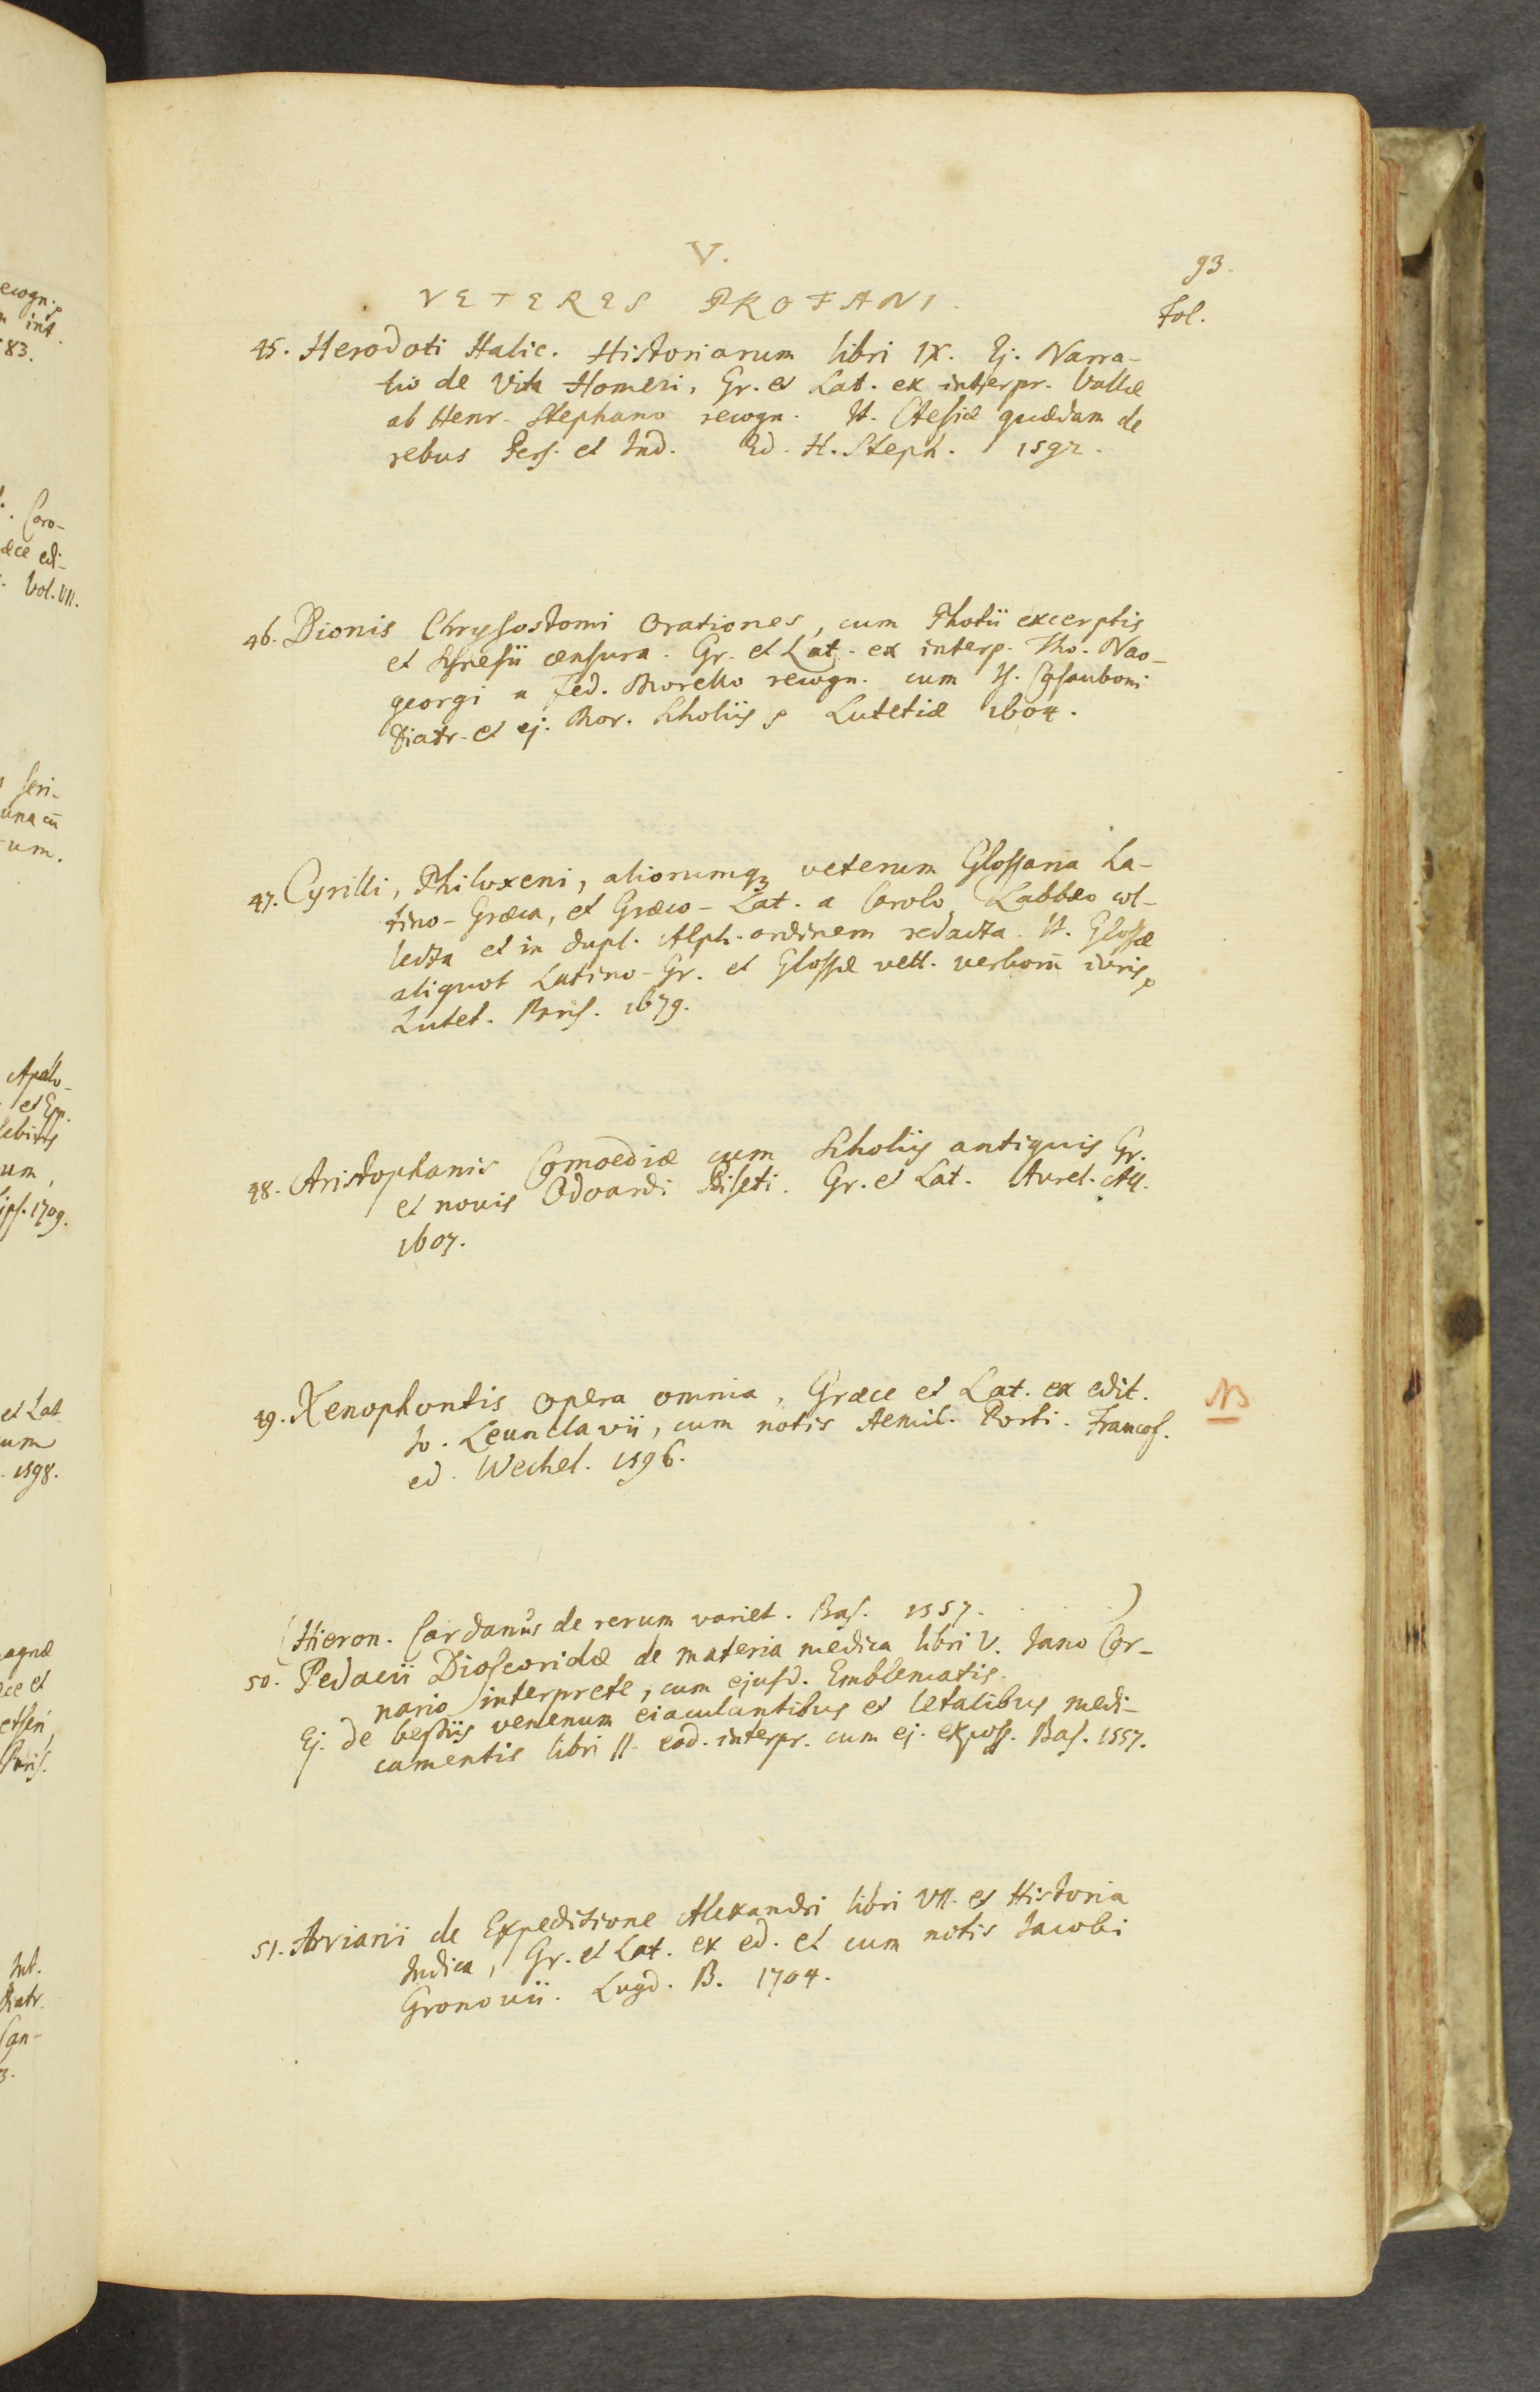 V.
93.
VETERES PROFANI.
Fol.
45. Herodoti Halic. Historiarum libri IX. Ej. Narra-
tio de Vita Homeri, Gr. et Lat. ex interpr. Vallæ
ab Henr. Stephano recogn. It. Ctesiæ quædam de
rebus Pers. et Ind. Ed. H. Steph. 1592.
46. Dionis Chrysostomi Orationes, cum Photii excerptis
et Synesii censura. Gr. et Lat. ex interp. Tho. Nao-
georgi a Fed. Morello recogn. cum Is. Casauboni
Diatr. et ej. Mor. Scholiis Lutetiæ 1604.
47. Cyrilli, Philoxeni, aliorumq₃ veterum Glossaria La-
tino-Græca, et Græco-Lat. a Carolo Labbæo col-
lecta et in dupl. Alph. ordinem redacta. It. Glossæ
aliquot Latino-Gr. et Glossæ vett. verborū iuris
Lutet. Paris. 1679.
48. Aristophanis Comoediæ cum Scholiis antiquis Gr.
et novis Odoardi Biseti. Gr. et Lat. Aurel. All.
1607.
49. Xenophontis opera omnia, Græce et Lat. ex edit.
Jo. Leunclavii, cum notis Aemil. Porti. Francof.
ed. Wechel. 1596.
NB
(Hieron. Cardanus de rerum variet. Bas. 1557. . . .)
50. Pedacii Dioscoridæ de materia medica libri V. Jano Cor-
nario interprete, cum ejusd. Emblematis.
Ej. de bestiis venenum eiaculantibus et letalibus medi-
camentis libri II. eod. interpr. cum ej. exposs. Bas. 1557.
51. Arriani de Expeditione Alexandri libri VII. et Historia
Indica, Gr. et Lat. ex ed. et cum notis Jacobi
Gronovii. Lugd. B. 1704.